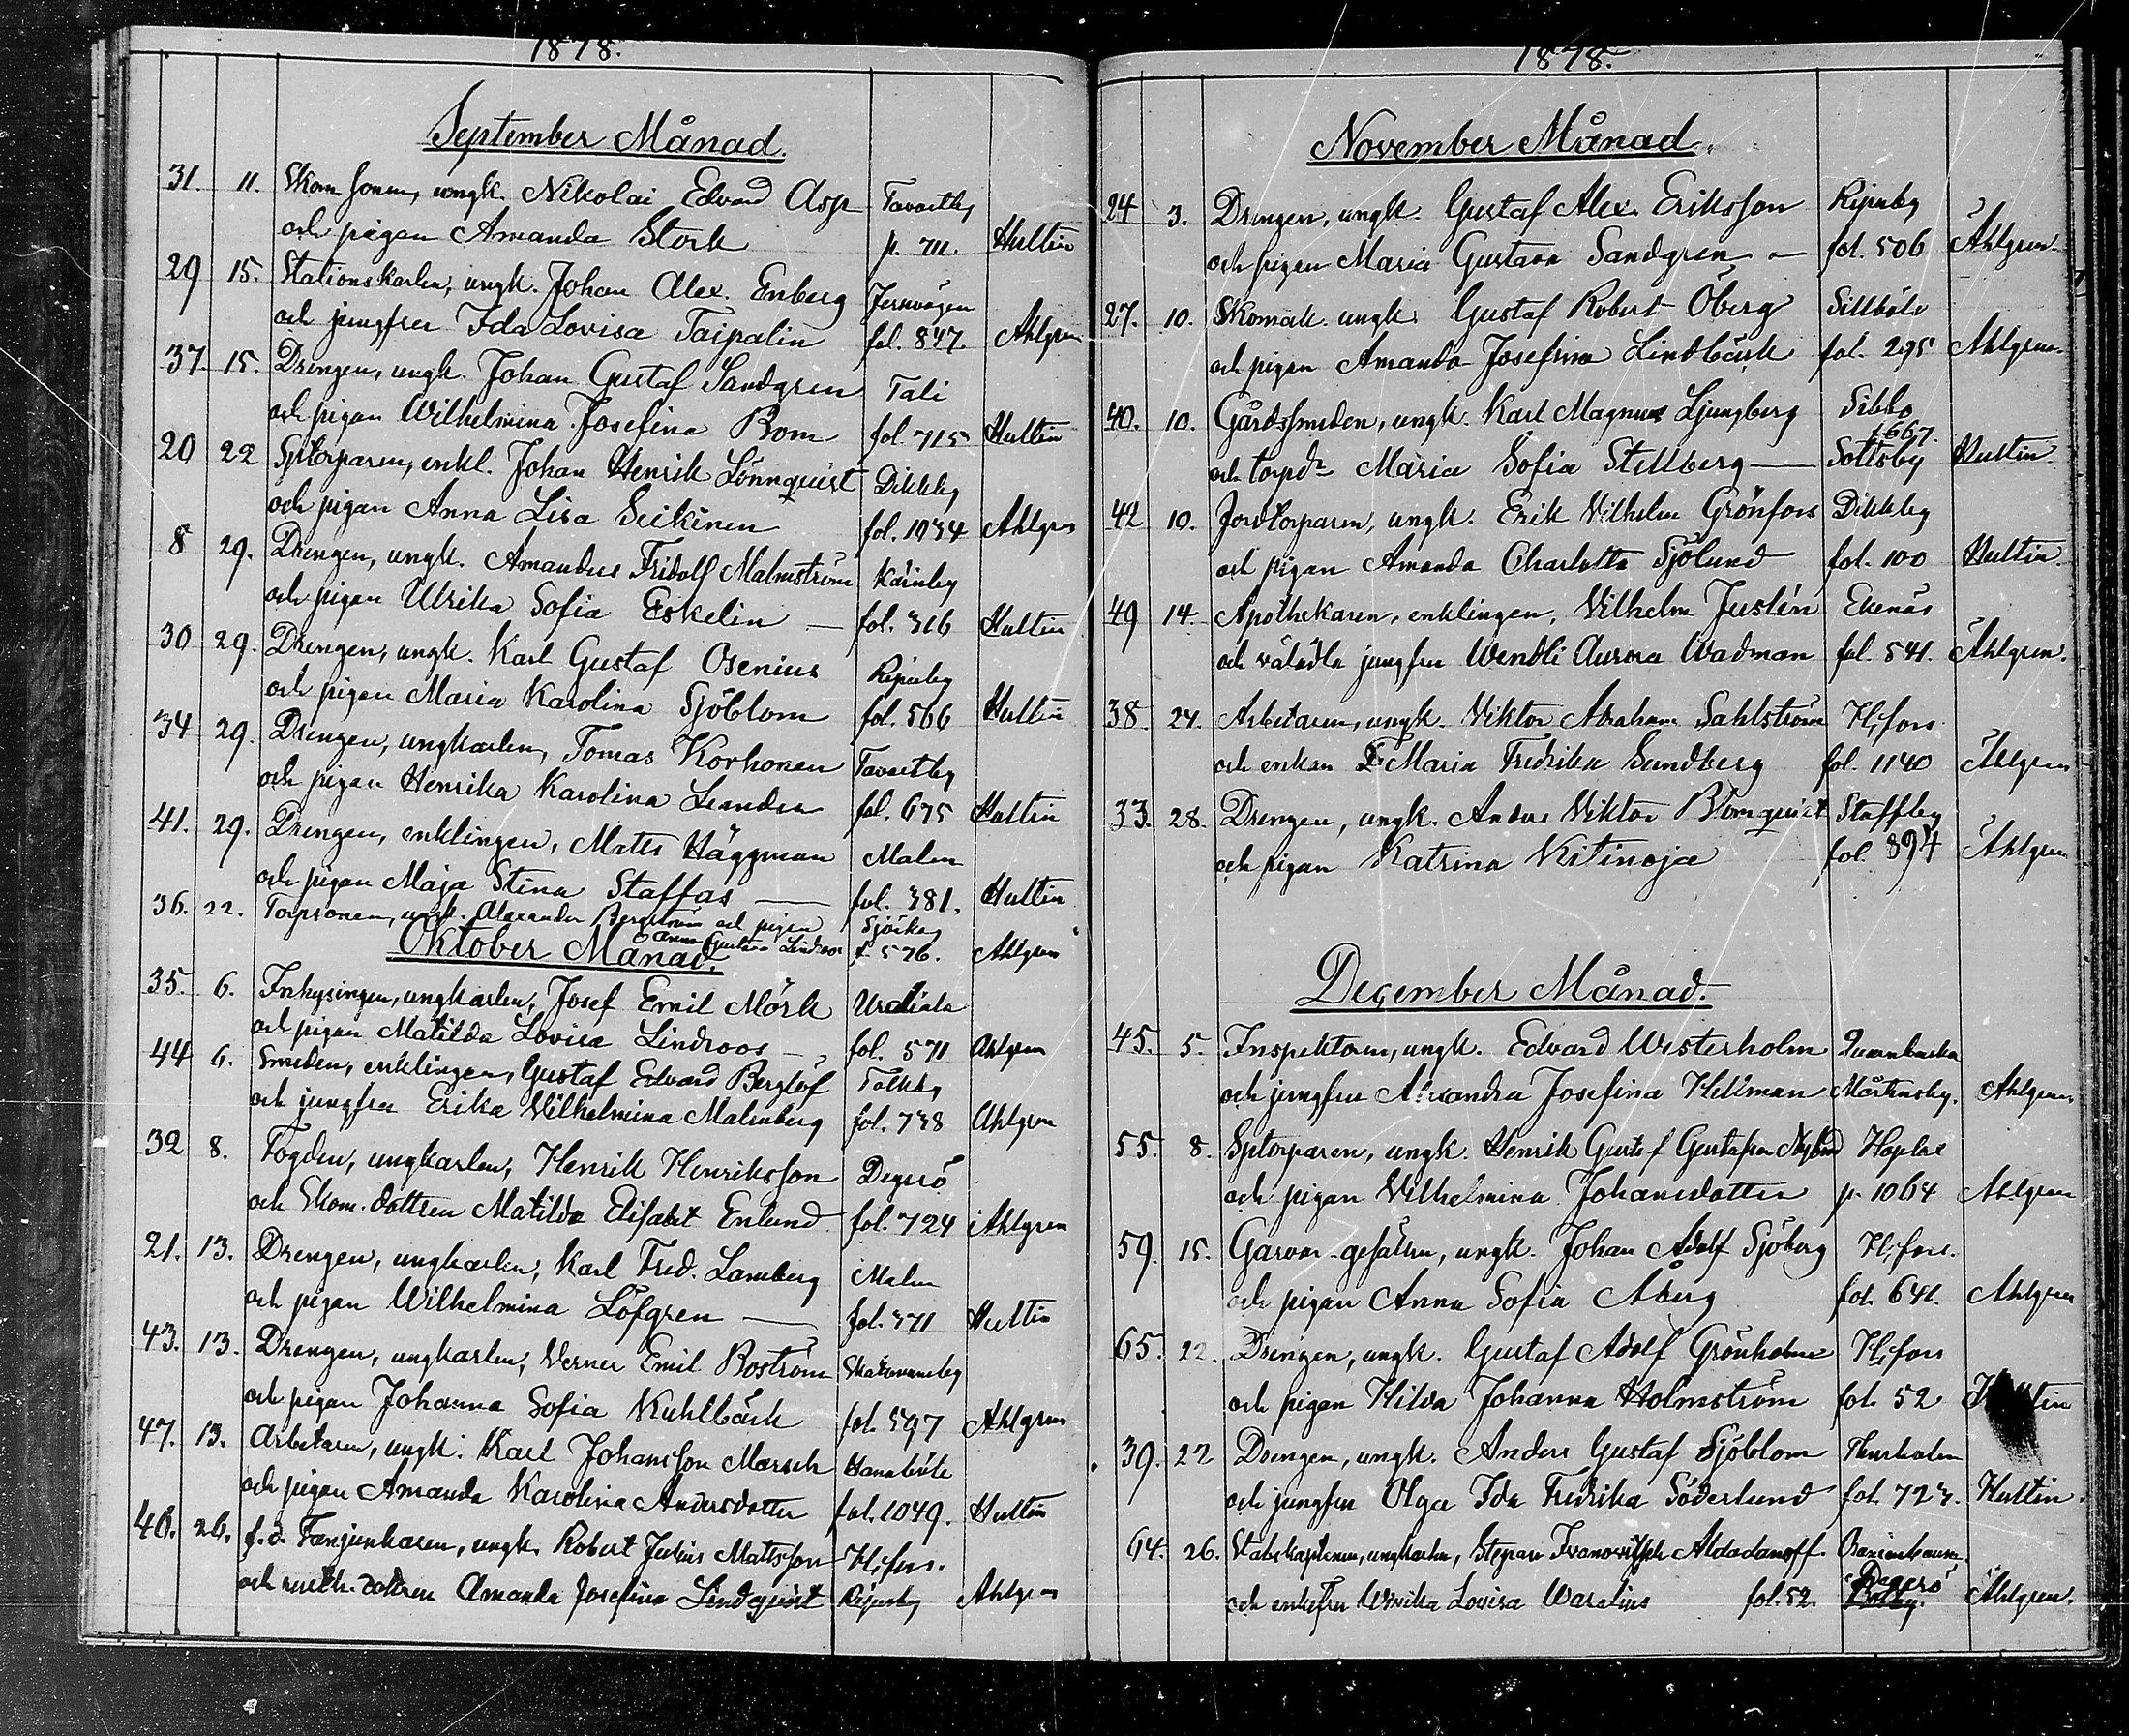 1878.
September Månad.
31. 11. Skom sonen, ungk. Nikolai Edvard Asp Tavastby
och pigan Amanda Stork p. 711. Hultin
29 15. Stationskarlen, ungk. Johan Alex. Enberg Jernvägen
och jungfru Ida Lovisa Taipalin fol. 847. Ahlgren
37. 15. Drengen, ungk. Johan Gustaf Sandgren Tali
och pigan Wilhelmina Josefina Bom fol. 715 Hultin
20 22 Sptorparen, enkl. Johan Henrik Lönnquist Dikkby
och pigan Anna Lisa Seikinen fol. 1034 Ahlgren
8 29. Drengen, ungk. Amandus Fridolf Malmström Kårinby
och pigan Ulrika Sofia Eskelin — fol. 316 Hultin
30 29. Drengen, ungk. Karl Gustaf Osenius Ripuby
och pigan Maria Karolina Sjöblom fol. 566 Hultin
34 29. Drengen, ungkarlen, Tomas Korhonen Tavastby
och pigan Henrika Karolina Leander fol. 675 Hultin
41. 29. Drengen, enklingen, Matts Häggman Malm
och pigan Maja Stina Staffas — fol. 381. Hultin
36. 22. Torpsonen, ungk. Alexander Bergström och pigan Sjöskog
Anna Gustava Lindroos f. 576. Ahlgren
Oktober Månad.
35. 6. Inhysingen, ungkarlen, Josef Emil Mörk Urdiala
och pigan Matilda Lovisa Lindroos — fol. 571 Ahlgren
44 6. Smeden, enklingen, Gustaf Edvard Berglöf Tolkby
och jungfru Erika Vilhelmina Malmberg fol. 738 Ahlgren
32 8. Fogden, ungkarlen, Henrik Henriksson Degerö
och Skom. dottren Matilda Elisabet Enlund fol. 724 Ahlgren
21. 13. Drengen, ungkarlen, Karl Fred. Lamberg Malm
och pigan Wilhelmina Löfgren — fol. 371 Hultin
43. 13. Drengen, ungkarlen, Verner Emil Boström
och pigan Johanna Sofia Kuhlbäck fol. 597 Ahlgren
47. 13. Arbetaren, ungk. Karl Johansson Marsch Hanaböle
och pigan Amanda Karolina Andersdotter fol. 1049. Hultin
46. 26. f.d. Fanjunkaren, ungk. Robert Julius Mattsson H:fors.
och rusth. dottren Amanda Josefina Lindquist Ripusby Ahlgren
1878.
November Månad.
24 3. Drengen, ungk. Gustaf Alex. Eriksson Ripuby
och pigan Maria Gustava Sandgren — fol. 506 Åhlgren
27. 10. Skomak. ungk. Gustaf Robert Öberg Sillböle
och pigan Amanda Josefina Lindbäck fol. 295 Ahlgren.
40. 10. Gårdssmeden, ungk. Karl Magnus Ljungberg Sibbo
f. 667.
och torpdr Maria Sofia Stellberg — Sottsby Hultin
42 10. Jordtorparen, ungk. Erik Vilhelm Grönfors Dikkby
och pigan Amanda Charlotta Sjölund fol. 100 Hultin.
49 14. Apothekaren, enklingen, Vilhelm Juslén Ekenäs
och välädla jungfru Wendli Aurora Wadman fol. 541. Åhlgren.
38. 24. Arbetaren, ungk. Viktor Abraham Sahlström H:fors.
och enkan Maria Fredrika Sundberg fol. 1140 Åhlgren
33. 28. Drengen, ungk. Anders Viktor Blomquist Staffsby
och pigan Katrina Kitinoja fol. 894 Åhlgren
December Månad.
45. 5. Inspektoren, ungk. Edvard Westerholm Qvarnbacka
och jungfru Alexandra Josefina Hellman Mårtensby. Ahlgren
55. 8. Sptorparen, ungk. Henrik Gustaf Gustafsson Nylund Hoplax
och pigan Vilhelmina Johansdotter p. 1064 Ahlgren
59. 15. Garvar-gesällen, ungk. Johan Adolf Sjöberg H:fors.
och pigan Anna Sofia Åberg fol. 641. Ahlgren
65. 22. Drengen, ungk. Gustaf Adolf Grönholm H:fors
och pigan Hilda Johanna Holmström fol. 52 Hultin
39. 22 Drengen, ungk. Anders Gustaf Sjöblom Thurholm
och jungfru Olga Ida Fredrika Söderlund fol. 723. Hultin.
64. 26. Stabskaptenen, ungkarlen, Stepan Ivanovitsch Aldadanoff. Oranienbaum.
Degerö
och enkefru Ulrika Lovisa Waralius fol. 52. Botby. Åhlgren.